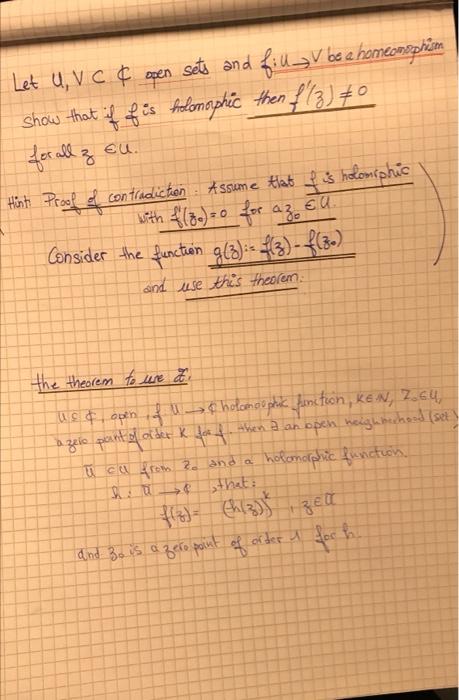 Let U, V ⊂ ₵ open sets and f: U → V be a homeomorphism
show that if f is holomorphic then f'(z) ≠ 0
for all z ∈ U.
Hint: Proof of contradiction: Assume that f is holomorphic
with f'(z₀) = 0 for a z₀ ∈ U.
Consider the function g(z) := f(z) - f(z₀)
and use this theorem.
the theorem to use
U ⊆ ₵, open, f U → ₵ holomorphic function, K ∈ N, Z₀ ∈ U,
a zero point of order K for f. then ∃ an open neighborhood (set)
Ũ ⊂ U from z₀ and a holomorphic function
h: Ũ → ₵, that:
f(z) = (h(z))ᵏ, z ∈ Ũ
and z₀ is a zero point of order 1 for h.